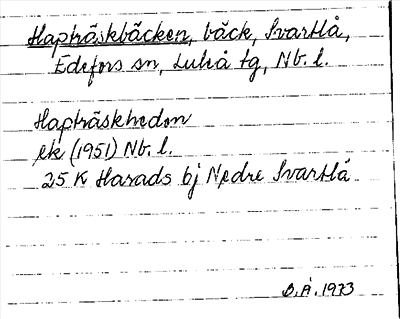 Hapträskbäcken, bäck, Svartlå,
Edefors sn, Luleå tg, Nb. l.
Hapträskhedon
ek (1951) Nb. l.
25 K Harads bj Nedre Svartlå
B. Å. 1973